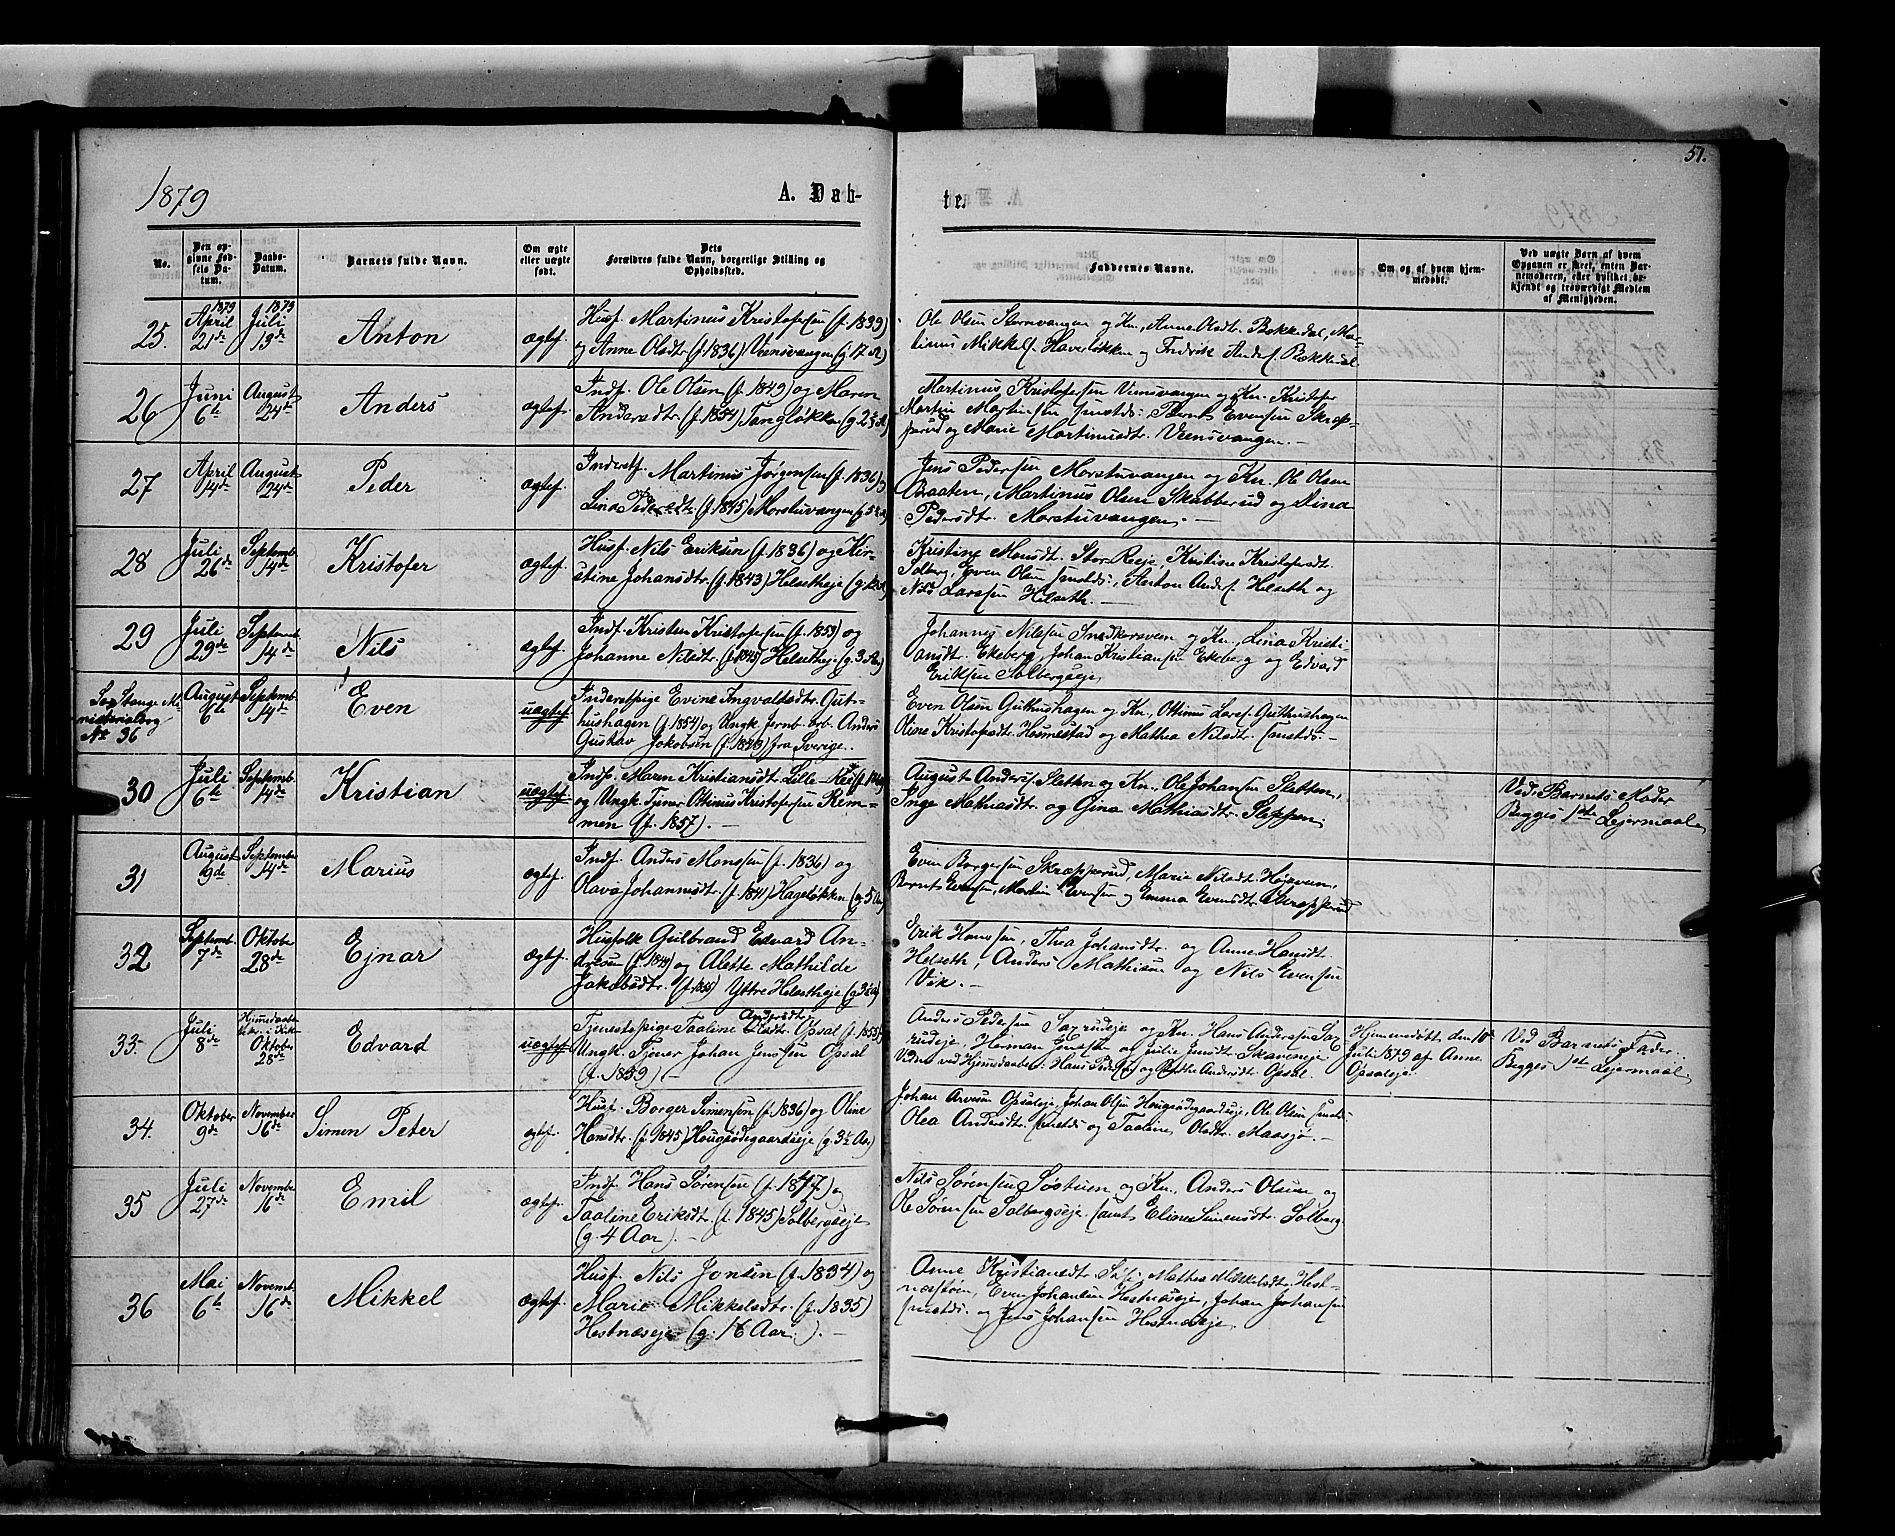 51.
1879
A. Døb-
te.
No.
Den op-
givne Fød-
sels Da-
tum.
Daabs-
Datum.
Barnets fulde Navn.
Om ægte
eller uægte
født.
Dets
Forældres fulde Navn, borgerlige Stilling og
Opholdssted.
Faddernes Navne.
Om og af hvem hjem-
medøbt.
Ved uægte Børn af hvem
Opgaven er skeet, enten Bar-
nemoderen, eller hvilket be-
kjendt og troværdigt Medlem
af Menigheden.
25.
1879
April
21de
1879
Juli
13de
Anton
ægtef.
Husf. Martinus Kristofersen (f. 1839)
og Anne Olsdtr. (f. 1836) Veensvangen (g. 12 A)
Ole Olsen Stornvangen og Kn., Anne Olsdtr. Bekkedal, Mar-
tinus Mikkels. Haverløkken og Fredrik Anders. Bekkedal
26
Juni
6te
August
24de
Anders
ægtef.
Indf. Ole Olsen (f. 1849) og Maren
Andersdtr. (f. 1854) Tangløkka (g. 2½ A)
Martinus Kristofersen Veensvangen og Kn. Kristofer
Martin Martinsen smstds; Bernt Evensen Skrep-
perud og Marie Martinusdtr. Veensvangen. —
27
April
14de
August
24de
Peder
ægtef.
Inderstf. Martinus Jørgensen (f. 1836) og
Lina Pedersdtr. (f. 1845) Morstuvangen (g. 5½ A)
Jens Pedersen Morstuvangen og Kn. Ole Olsen
Baaten, Martinus Olsen Skabberud og Lina
Pedersdtr. Morstuvangen. —
28
Juli
26de
Septemb.
14de
Kristofer
ægtef.
Husf. Nils Eriksen (f. 1836) og Kir-
stine Johansdtr. (f. 1843) Helsetheje
Kristine Monsdtr. Stor Reeje, Kristine Kristofersdtr.
Solberg, Even Olsen smstds, Anton Anders. Helseth og
Nils Larssen Helseth. —
29
Juli
29de
Septemb.
14de
Nils
ægtef.
Indf. Kristen Kristofersen (f. 1853) og
Johanne Nilsdtr. (f. 1845) Helsetheje. (g. 3 A.)
Johannes Nilssen Snedkersveen og Kn., Lina Kristi-
ansdtr. Ekeberg, Johan Kristiansen Ekeberg og Edvard
Eriksen Solbergseje.
Se Stange Mi-
nisterialbog
No 36
August
6te
Septemb.
14de
Even
uægtef.
Inderstpige Evine Ingvaldsdtr. Gut-
hushagen (f. 1854) og Ungk. Jernb.arb. Anders
Gustav Jakobsen (f. 1843) fra Sverige.
Even Olsen Guthushagen og Kn., Ottinus Larss. Guthushagen
Oline Kristofersdtr. Hommestad og Mathea Nilsdtr. smstds —
30
Juli
6te
Septemb.
14de
Kristian
uægtef.
Indp. Maren Kristiansdtr. Lille-Ree
og Ungk. Tjener Ottinus Kristofersen Rem-
men (f. 1857). —
August Anders. Sletten og Kn., Ole Johansen Sletten,
Inge Mathiasdtr. og Gina Mathiasdtr. Sleppen.
Ved Barnets Moder
Begges 1ste Lejermaal.
31
August
19de
Septembr
14de
Marius
ægtef.
Indf. Anders Monssen (f. 1836) og
Olava Johannesdtr. (f. 1841) Hageløkken (g. 5 Aar)
Even Borgersen Skrepperud, Marie Nilsdtr. Højsveen,
Bernt Evensen, Martin Evensen og Emma Evensdtr. Skrepperud
32
Septemb.
7de
Oktober
28de
Ejnar
ægtef.
Husfolk Gulbrand Edvard An-
dresen (f. 1849) og Alette Mathilde
Jakobsdtr. (f. 1855) Yttre Helsetheje (g. 3½ A)
Erik Hanssen, Thea Johansdtr. og Anne Hansdtr.
Helseth, Anders Mathisen og Nils Evensen
Vik. —
33.
Juli
8de
Hjemedaaben
bek. i Kirk.
Oktober
28de
Edvard
uægtef.
Tjenestepige Taaline Andersdtr. Opsal (f. 1855)
Ungk. Tjener Johan Jenssen Opsal
(f. 1859) —
Anders Pedersen Saxrudeje og Kn. Hans Andersen Sax-
rudeje, Herman Jenssen og Julie Jensdtr. Skavenseje
Vidner ved Hjemedaaben: Hans Peders. og Berthe Andersdtr. Opsal.
Hjemmedøbt den 10de
Juli 1879 af Anne
Opsaleje.
Ved Barnets Fader.
Begges 1ste Lejermaal.
34.
Oktober
9de
November
16de
Simen Peter
ægtef.
Husf. Borger Simensen (f. 1836) og Oline
Hansdtr. (f. 1845) Hougsødegaardseje (g. 3½ Aar)
Johan Arvesen Opsaleje, Johan Olsen Hougsødegaardseje, Ole Olsen smstds.
Olea Andersdtr. smstds og Taaline Olsdtr. Maasjø. —
35
Juli
27de
Novembr
16de
Emil
ægtef.
Indf. Hans Sørensen (f. 1847) og
Taaline Eriksdtr. (f. 1845) Solbergseje
(g. 4 Aar). —
Nils Sørensen Søstuen og Kn., Anders Olsen og
Ole Sørensen Solbergseje samt Eline Simensdtr. Solberg.
36
Mai
6te
Novemb.
16de
Mikkel
ægtef.
Husf. Nils Jonsen (f. 1834) og
Marie Mikkelsdtr. (f. 1835)
Hestnæseje (g. 16 Aar.). —
Anne Kristiansdtr. Mathea Mikkelsdtr. Hest-
næseje, Johan Johansen
smstds. og Jens Johansen Hestnæseje